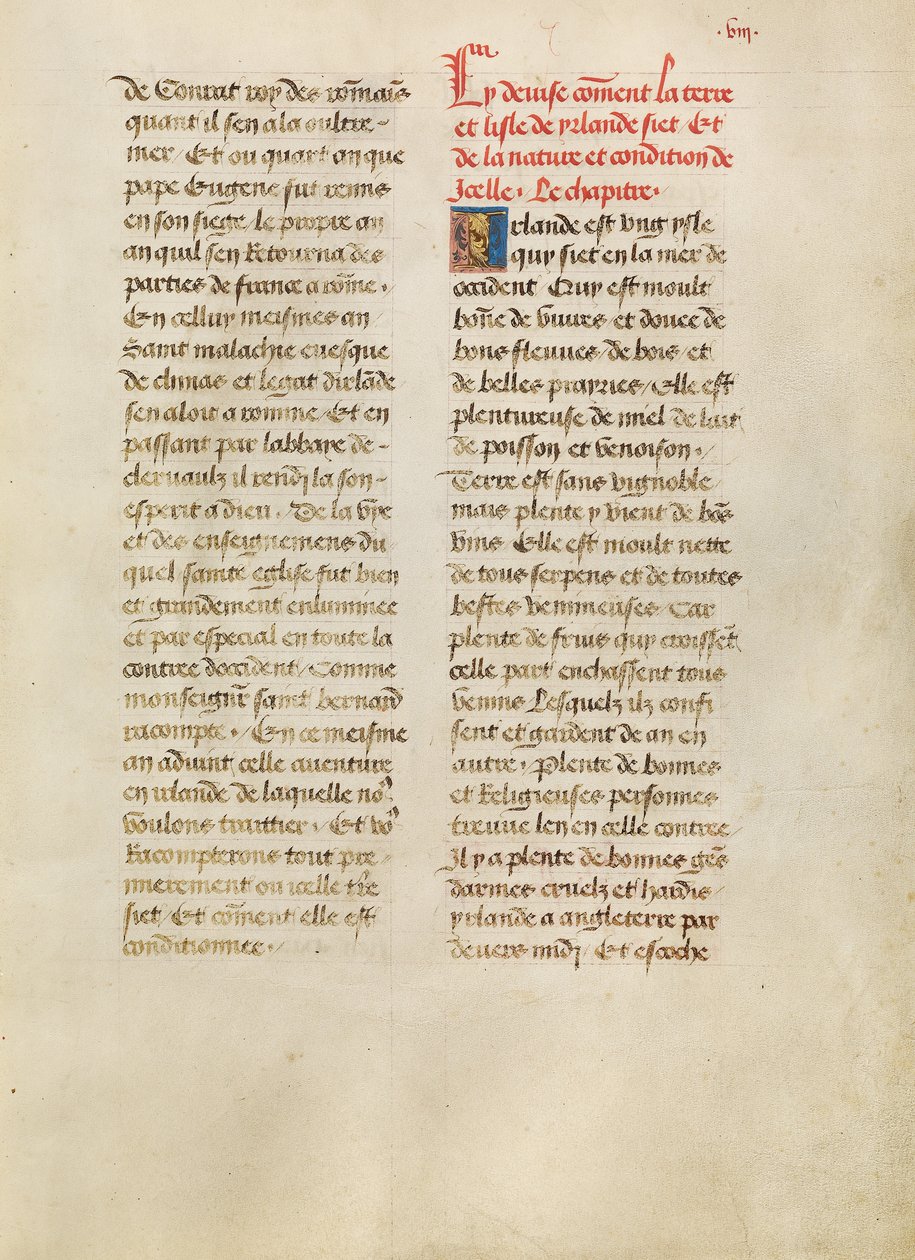 ·viij·
de Conrat roy des rōmaīs
quant il sen ala oultre-
mer / Et ou quart an que
pape Eugene fut remis
en son siege / le propre an
an quil sen Retourna des
parties de france a rōme .
En celluy meismes an /
Saint malachie euesque
de clunas et legat dirlāde
sen aloit a romme / Et en
passant par labbaye de-
cleruaulz il rendj la son-
esperit a dieu . De la vye
et des enseignemens du
quel sainte eglise fut bien
et grandement enluminee
et par especial en toute la
contree doccident / Comme
monseignr̄ saint bernard
racompte . / En ce meisme
an aduint celle auenture
en irlande de laquelle noꝰ
voulons traittier . / Et voꝰ
Racompterons tout pre-
mierement ou icelle tr̄e
siet / Et cōment elle est
conditionnee . /
Cy deuise cōment la terre
et lisle de yrlande siet / Et
de la nature et condition de
Icelle . Le iiij chapitre .
Irlande est vng ysle
quy siet en la mer de
occident / Quy est moult
bōne de viures et douee de
bons fleuues / de bois / et
de belles prayries / Elle est
plentureuse de miel de lait
de poisson et venoison . /
Terre est sans vignoble /
mais plente y vient de bōs
vins / Elle est moult nette
de tous serpens et de toutes
bestes venimeuses / Car
plente de fruis quy croissēt
celle part enchassent tous
venins Lesquelz ilz confi
sent et gardent de an en
autre . Plente de bonnes
et Religieuses personnes
treuue len en celle contree /
Il y a plente de bonnes gēs
darmes cruelz et hardis /
yrlande a angleterre par
deuers midj / Et escoche